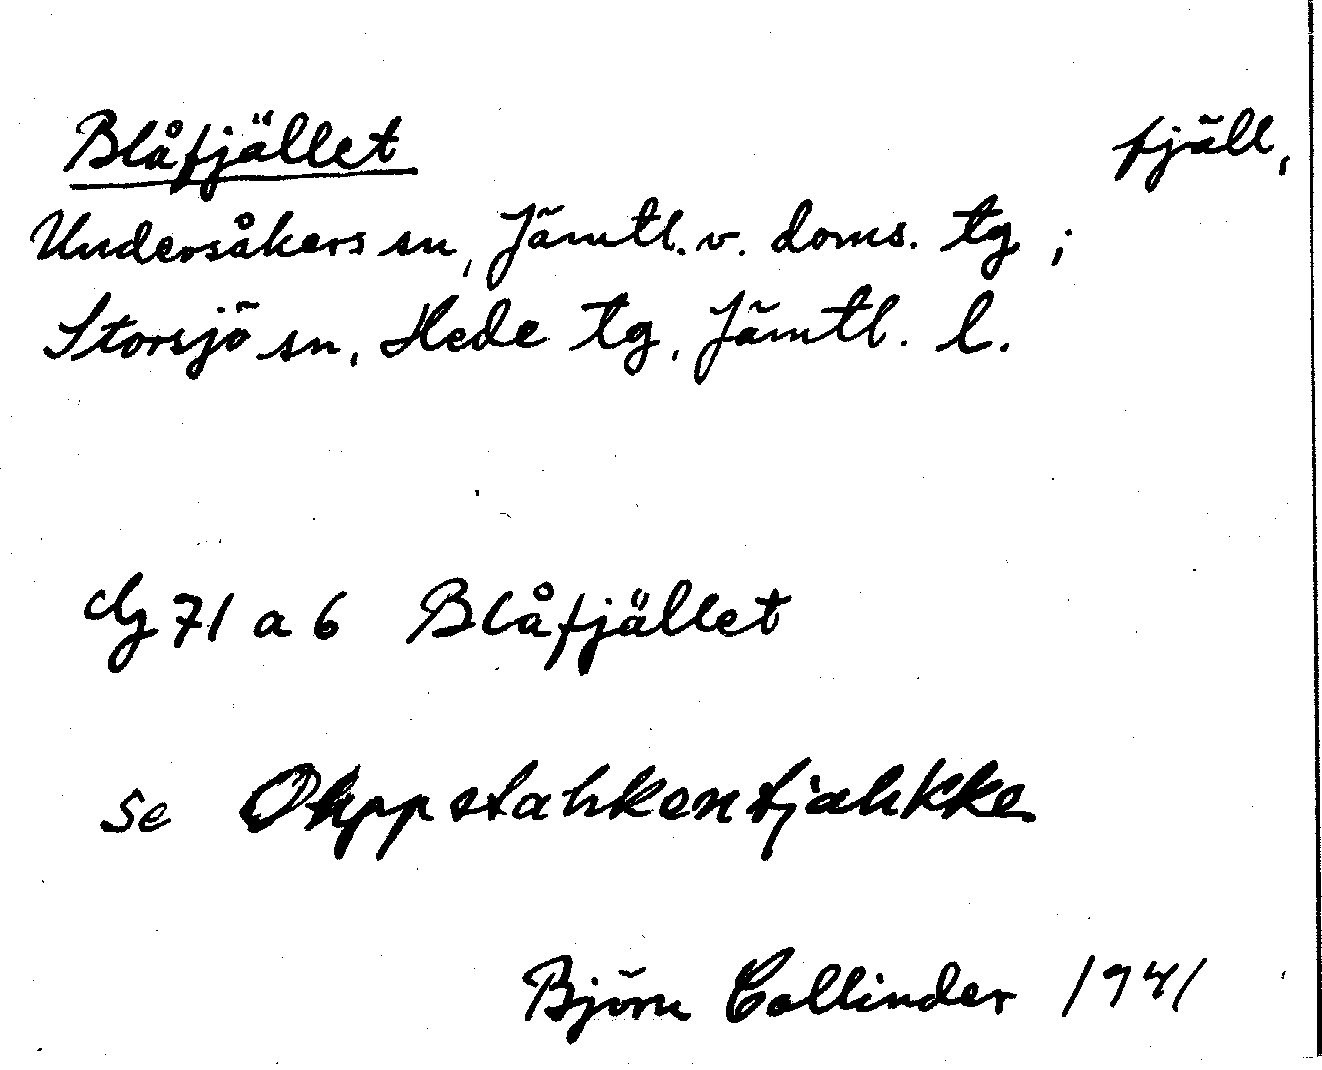 Blåfjället fjäll,
Undersåkers sn, Jämtl. v. doms. tg;
Storsjö sn, Hede tg, Jämtl. l.
71 a 6 Blåfjället
se
Björn Collinder 1941